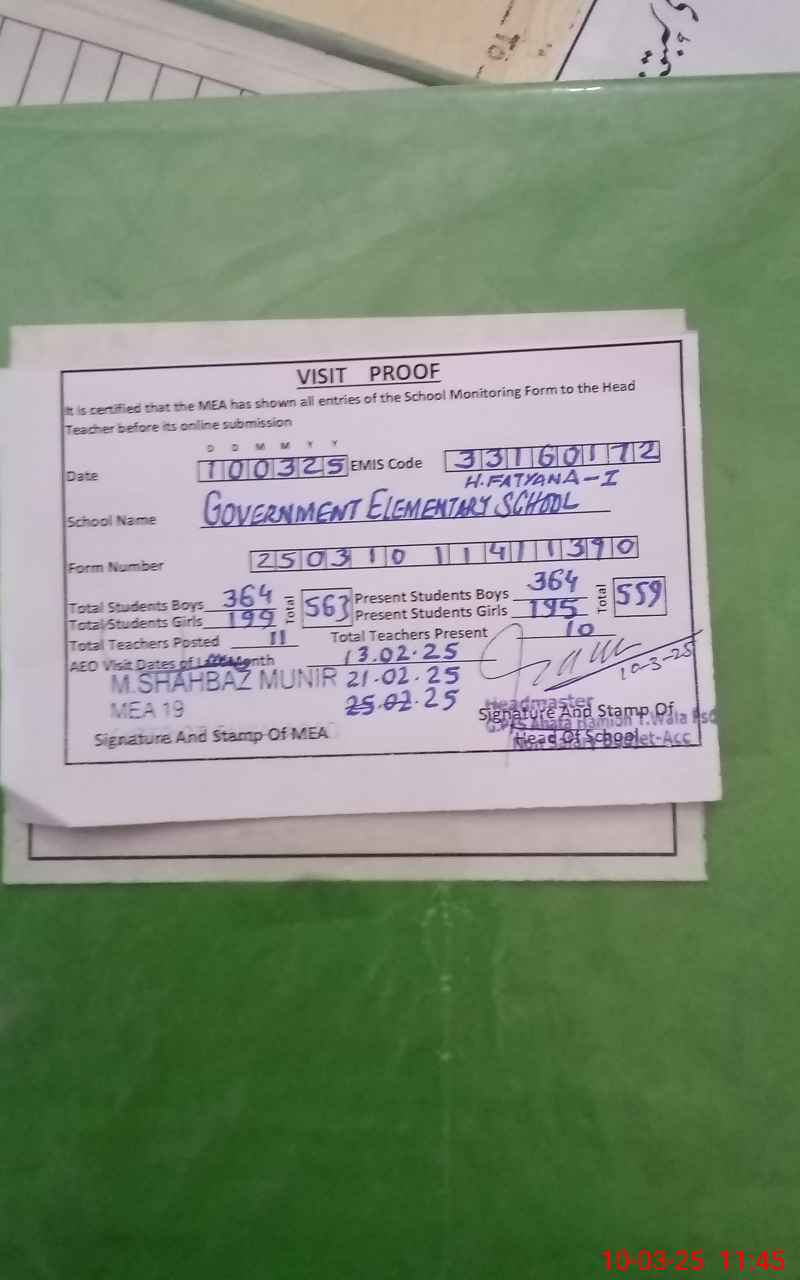 VISIT PROOF
It is certified that the MEA has shown all entries of the School Monitoring Form to the Head
Teacher before its online submission
D D M M Y Y
Date 100325 EMIS Code 33160172
H.FATYANA-I
School Name GOVERNMENT ELEMENTARY SCHOOL
Form Number 2503101141390
Total Students Boys 364 Total 563 Present Students Boys 364 Total 559
Total Students Girls 199 Present Students Girls 195
Total Teachers Posted 11 Total Teachers Present 10
AEO Visit Dates of Month 13.02.25
M.SHAHBAZ MUNIR 21.02.25 10-3-25
MEA 19 25.02.25 Headmaster
Signature And Stamp Of MEA Signature And Stamp Of
Head Of School
10-03-25 11:45